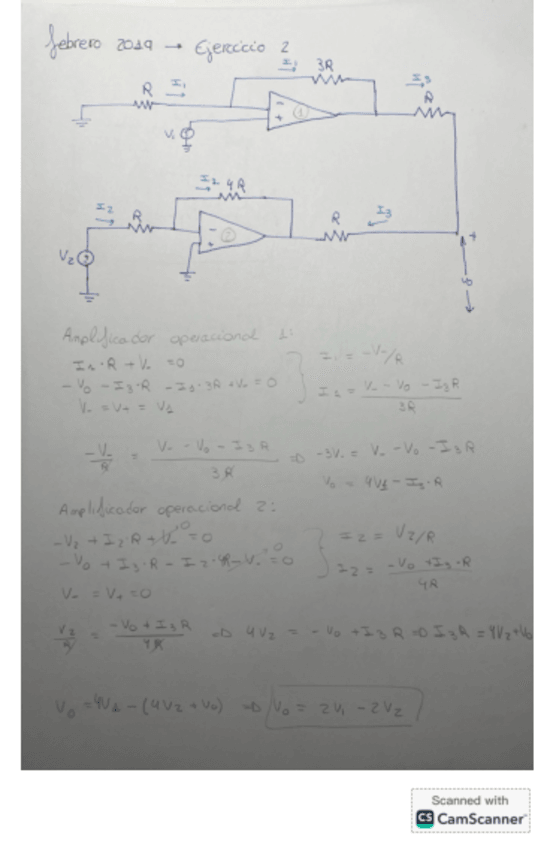 febrero 2019 → Ejercicio 2
I1 3R I3
R I1 R
V1 - + 1
I2 4R
I2 R R I3
V2 - + 2 + Vo -
Amplificador operacional 1:
I1·R + V- = 0
-Vo - I3·R - I1·3R + V- = 0
V- = V+ = V1
I1 = -V-/R
I1 = V- - Vo - I3R / 3R
-V-/R = V- - Vo - I3R / 3R => -3V- = V- - Vo - I3R
Vo = 4V1 - I3·R
Amplificador operacional 2:
-V2 + I2·R + V- = 0
-Vo + I3·R - I2·4R - V- = 0
V- = V+ = 0
I2 = V2/R
I2 = -Vo + I3·R / 4R
V2/R = -Vo + I3R / 4R => 4V2 = -Vo + I3R => I3R = 4V2+Vo
Vo = 4V1 - (4V2 + Vo) => Vo = 2V1 - 2V2
Scanned with
CS CamScanner